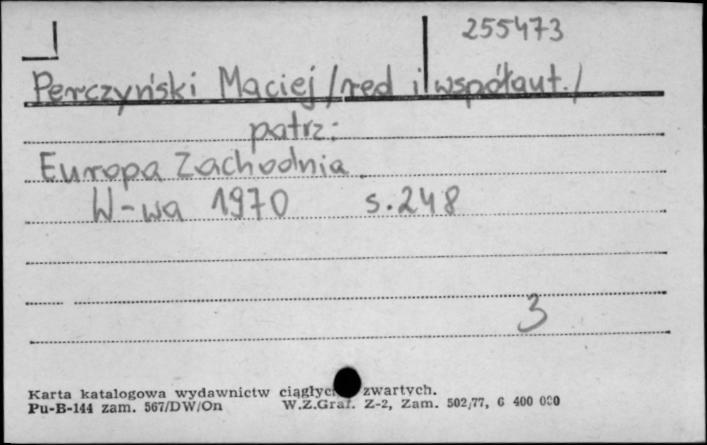 255473
Perczyński Maciej /red i współaut./
patrz:
Europa Zachodnia.
W-wa 1970 s.248
3
Karta katalogowa wydawnictw zwartych.
Pu-B-144 zam. 567/DW/On W.Z.Graf. Z-2, Zam. 502/77, G 400 000